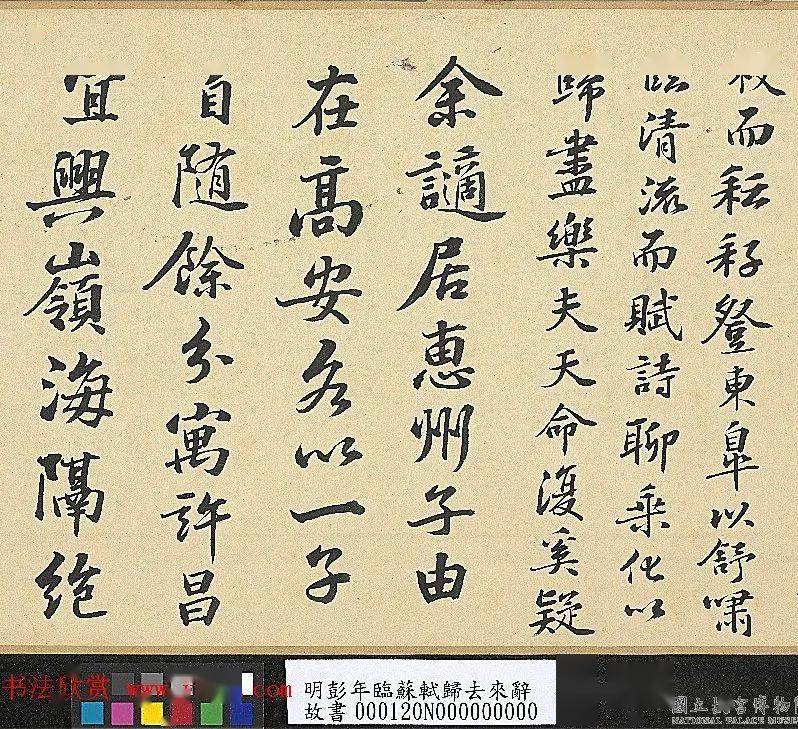 而耘耔登東皋以舒嘯
臨清流而賦詩聊乘化以
歸盡樂夫天命復奚疑
余謫居惠州子由
在高安各以一子
自隨餘分寓許昌
宜興嶺海隔絕
书法欣赏
明彭年臨蘇軾歸去來辭
故書 000120N000000000
國立故宮博物
NATIONAL PALACE